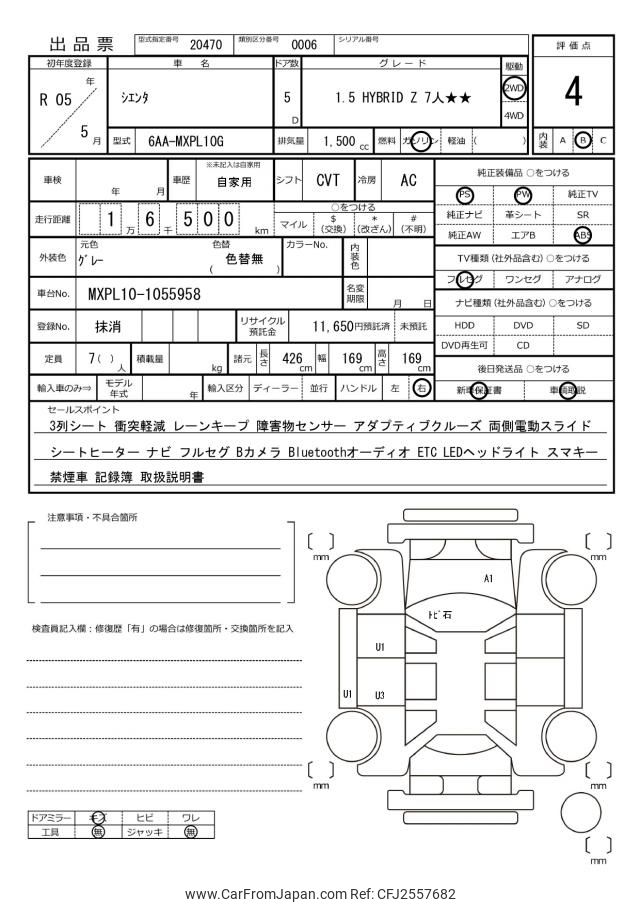 出品票 型式指定番号 20470 類別区分番号 0006 シリアル番号
評価点
4
内装 A B C
初年度登録 車名 ドア数 グレード 駆動
R 05 年 5 月
シエンタ
5 D
1.5 HYBRID Z 7人★★
2WD
4WD
型式 6AA-MXPL10G 排気量 1,500 cc 燃料 ガソリン 軽油 ( )
車検 年 月 車歴 ※未記入は自家用 自家用 シフト CVT 冷房 AC
走行距離 1 万 6 千 5 0 0 km
○をつける
マイル $ (交換) * (改ざん) # (不明)
外装色 元色 グレー 色替 ( 色替無 ) カラーNo. 内装色
車台No. MXPL10-1055958 名変期限 月 日
登録No. 抹消 リサイクル預託金 11,650円預託済 未預託
定員 7( )人 積載量 kg 諸元 長さ 426cm 幅 169cm 高さ 169cm
輸入車のみ⇒ モデル年式 年 輸入区分 ディーラー 並行 ハンドル 左 右
純正装備品 ○をつける
PS PW 純正TV
純正ナビ 革シート SR
純正AW エアB ABS
TV種類(社外品含む)○をつける
フルセグ ワンセグ アナログ
ナビ種類(社外品含む)○をつける
HDD DVD SD
DVD再生可 CD
後日発送品 ○をつける
新車保証書 車輌取説
セールスポイント
3列シート 衝突軽減 レーンキープ 障害物センサー アダプティブクルーズ 両側電動スライド
シートヒーター ナビ フルセグ Bカメラ Bluetoothオーディオ ETC LEDヘッドライト スマキー
禁煙車 記録簿 取扱説明書
注意事項・不具合箇所
検査員記入欄：修復歴「有」の場合は修復箇所・交換箇所を記入
mm
mm
A1
トビ石
U1
U1 U3
mm
mm
mm
ドアミラー キズ ヒビ ワレ
工具 無 ジャッキ 無
www.CarFromJapan.com Ref: CFJ2557682